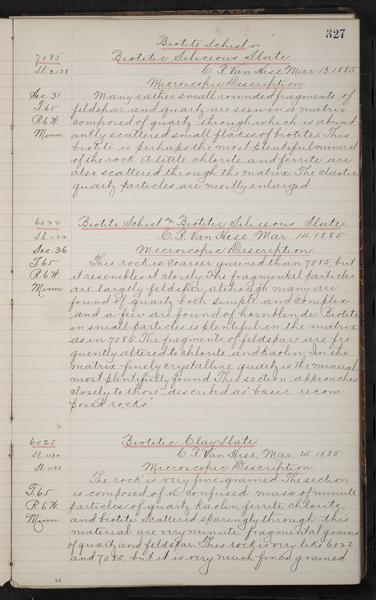 327
Biotite Schist or
7085 Biotitic Siliceous Slate.
Sl. 2138 C. R. Van Hise, Mar. 13. 1885.
Microscopic Description.
Sec. 31 Many rather small rounded fragments of
T. 65 feldspar and quartz are seen in a matrix
R. 6 W. composed of quartz through which is abund
Minn antly scattered small flakes of biotite. This
biotite is perhaps the most plentiful mineral
of the rock. A little chlorite and ferrite are
also scattered through the matrix. The clastic
quartz particles are mostly enlarged.
6022 Biotite Schist or Biotitic Siliceous Slate.
Sl. C. R. Van Hise, Mar. 14. 1885
Sec. 36 Microscopic Description.
T. 65 This rock is coarser grained than 7085, but
R. 6 W. it resembles it closely. The fragmental particles
Minn are largely feldspar, although many are
found of quartz both simple and complex
and a few are found of hornblende. Biotite
in small particles is plentiful in the matrix
as in 7085. The fragments of feldspar are fre-
quently altered to chlorite and kaolin. In the
matrix finely crystalline quartz is the mineral
most plentifully found. This section approaches
closely to those described as "basic recom
posed rocks"
6025 Biotitic Clay Slate.
Sl. C. R. Van Hise, Mar. 14. 1885.
Sl. Microscopic Description.
The rock is very fine grained. The section
T. 65 is composed of a confused mass of minute
R. 6 W. particles of quartz, kaolin, ferrite, chlorite,
Minn and biotite. Scattered sparingly through this
material are very minute fragmental grains
of quartz and feldspar. This rock is very like 6022
and 7085, but it is very much finer grained.